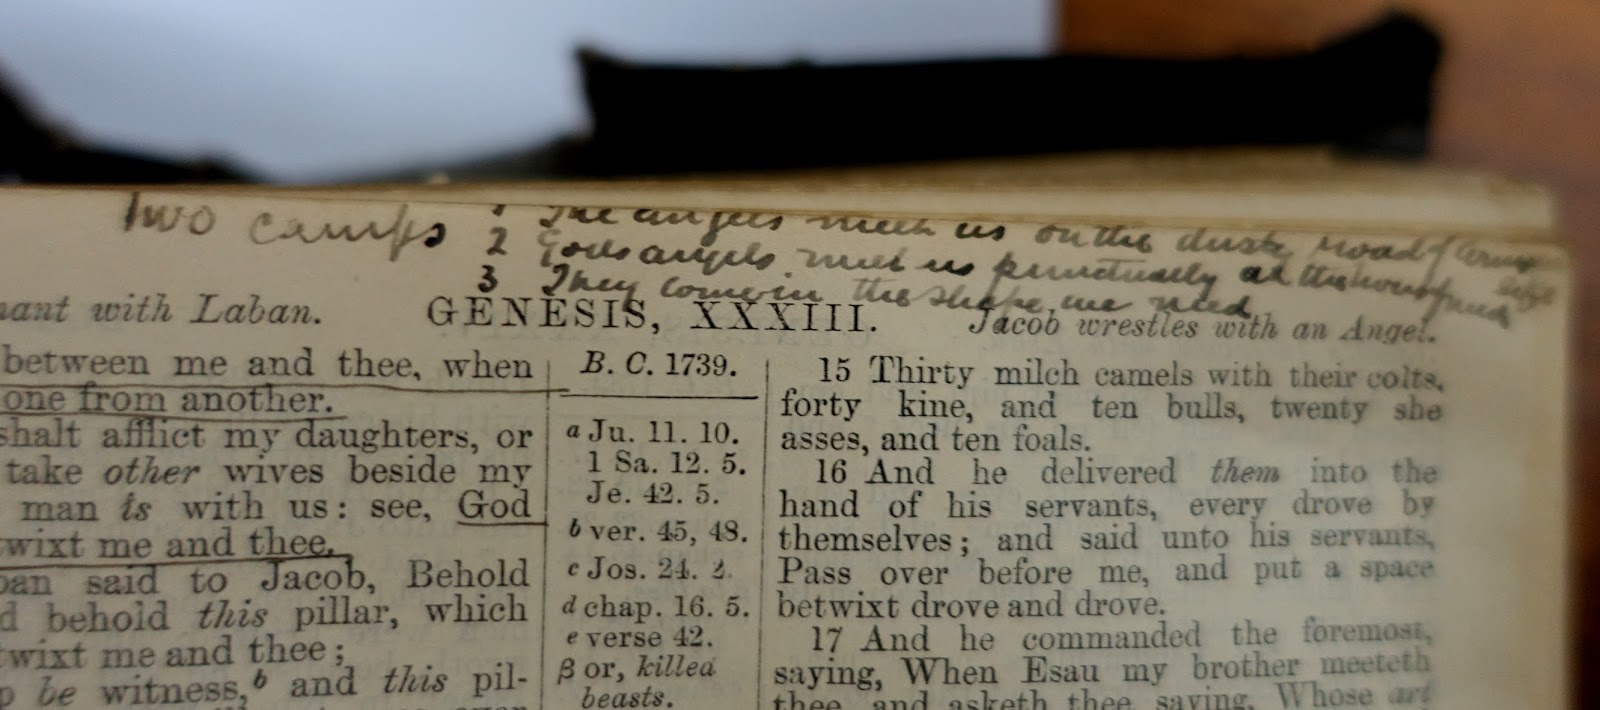 Two camps
1 The angels meet us on the dusty road of
2 Gods angels meet us punctually at the hour of need
3 They come in the shape we need
nant with Laban.
GENESIS, XXXIII.
Jacob wrestles with an Angel.
between me and thee, when
one from another.
shalt afflict my daughters, or
take other wives beside my
man is with us: see, God
twixt me and thee.
ban said to Jacob, Behold
d behold this pillar, which
twixt me and thee;
be witness,b and this pil-
B. C. 1739.
a Ju. 11. 10.
1 Sa. 12. 5.
Je. 42. 5.
b ver. 45, 48.
c Jos. 24.
d chap. 16. 5.
e verse 42.
β or, killed
beasts.
15 Thirty milch camels with their colts,
forty kine, and ten bulls, twenty she
asses, and ten foals.
16 And he delivered them into the
hand of his servants, every drove by
themselves; and said unto his servants,
Pass over before me, and put a space
betwixt drove and drove.
17 And he commanded the foremost,
saying, When Esau my brother meeteth
thee, and asketh thee, saying, Whose art